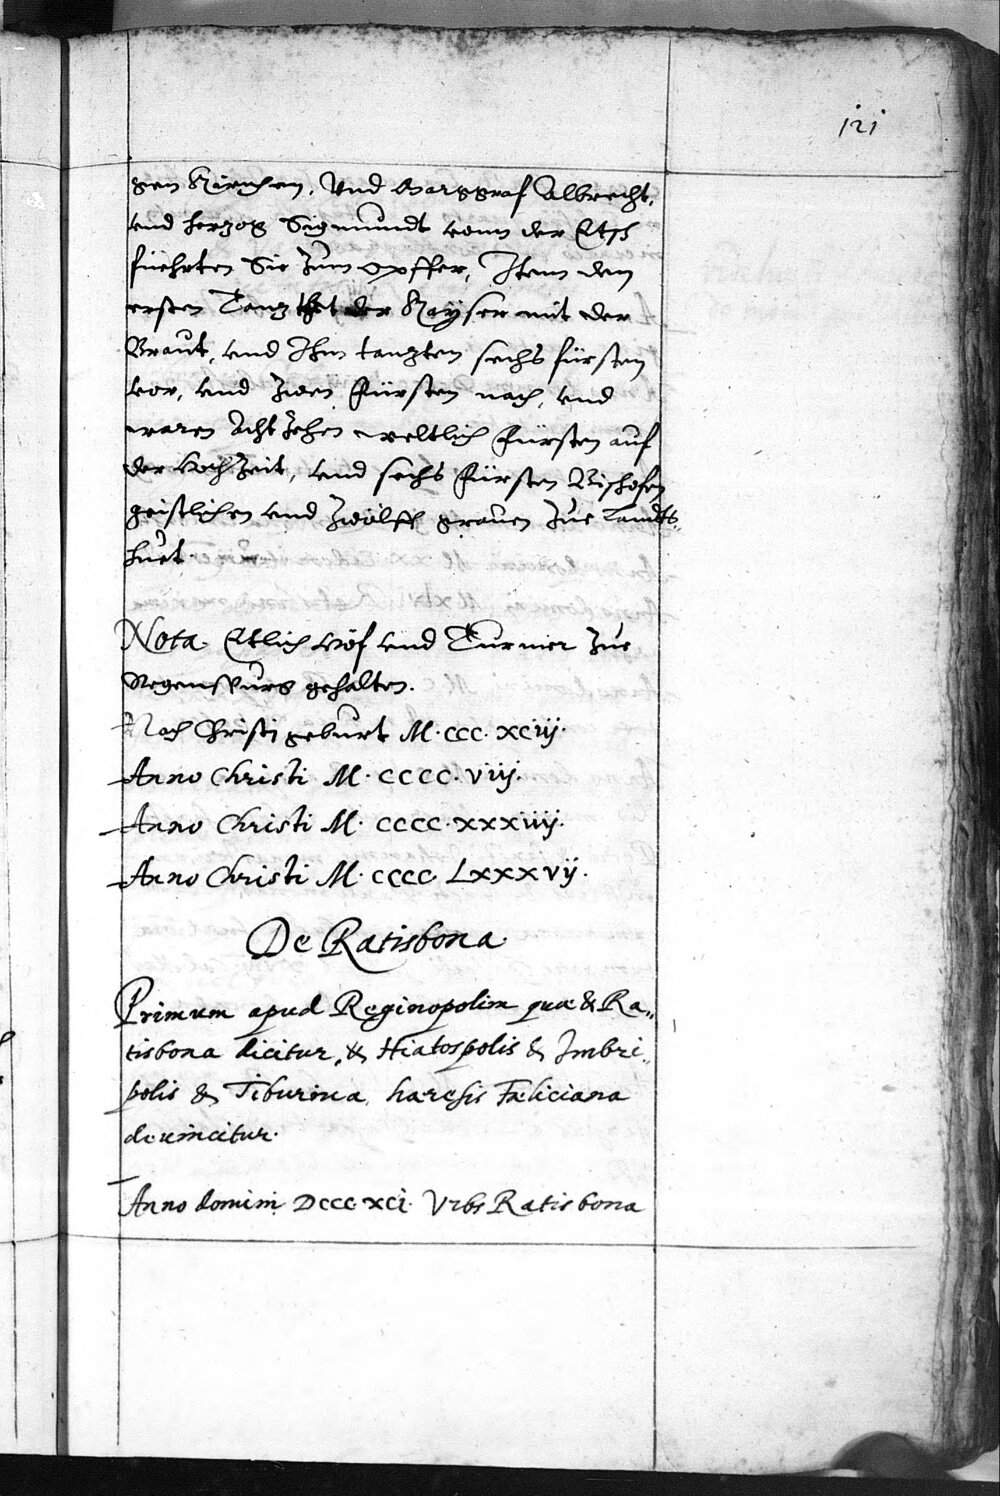 121
gen Kirchen, Vnd Marggraf Albrecht,
vnd herzog Sigmundt vonn der Etsch
füehrten Sie Zum opffer, Item den
ersten Tanz thet der Kayser mit der
Braut, vnd Ihm tanzten sechs fürsten
vor, vnd Zwen Fürsten nach, vnd
waren Acht Zehen weltlich Fürsten auf
der Hochzeit, vnd sechs Fürsten Bischofen
geistlichen vnd Zwölff grauen Zue Landts
huet
Nota. Etlich Höf vnd Turnier Zue
Regenspurg gehalten.
Nach Christi geburt M. CCC. XCIIIJ.
Anno Christi M. CCCC. VIIJ.
Anno Christi M. CCCC. XXXIIIJ.
Anno Christi M. CCCC LXXXVIJ.
De Ratisbona
Primum apud Reginopolim quæ & Ra„
tisbona dicitur, & Hiatospolis & Imbri„
polis & Tiburina, hæresis Fæliciana
deuincitur.
Anno domini DCCCXCI. Vrbs Ratisbona